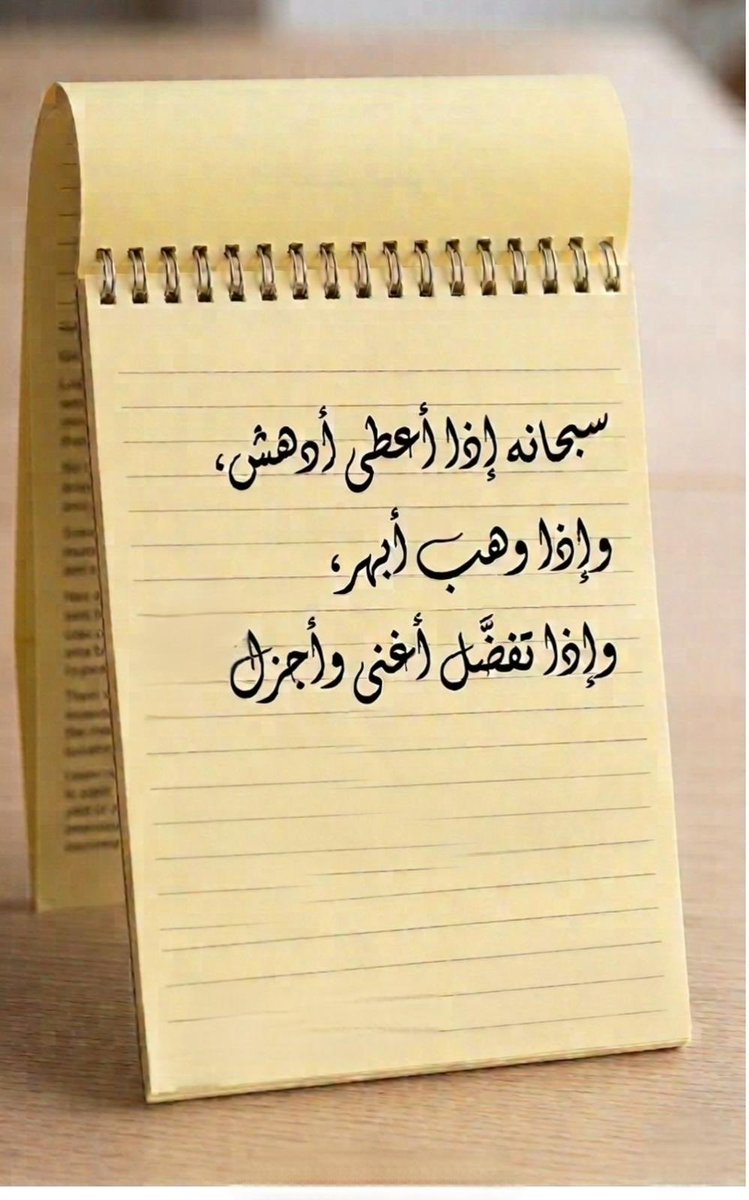 سبحانه إذا أعطى أدهش،
وإذا وهب أبهر،
وإذا تفضَّل أغنى وأجزل